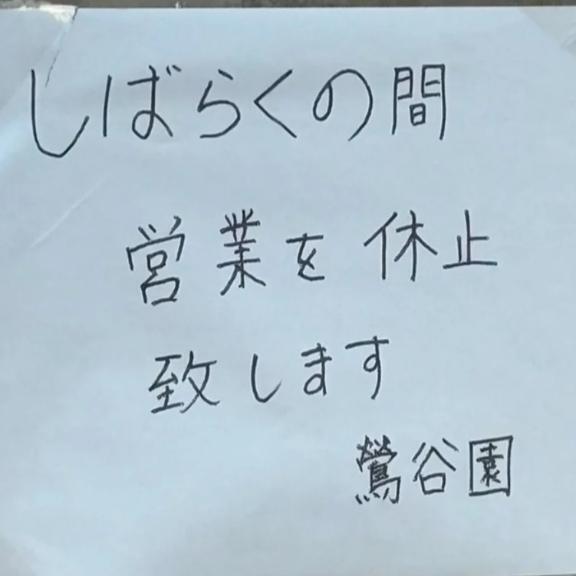 しばらくの間
営業を休止
致します
鶯谷園